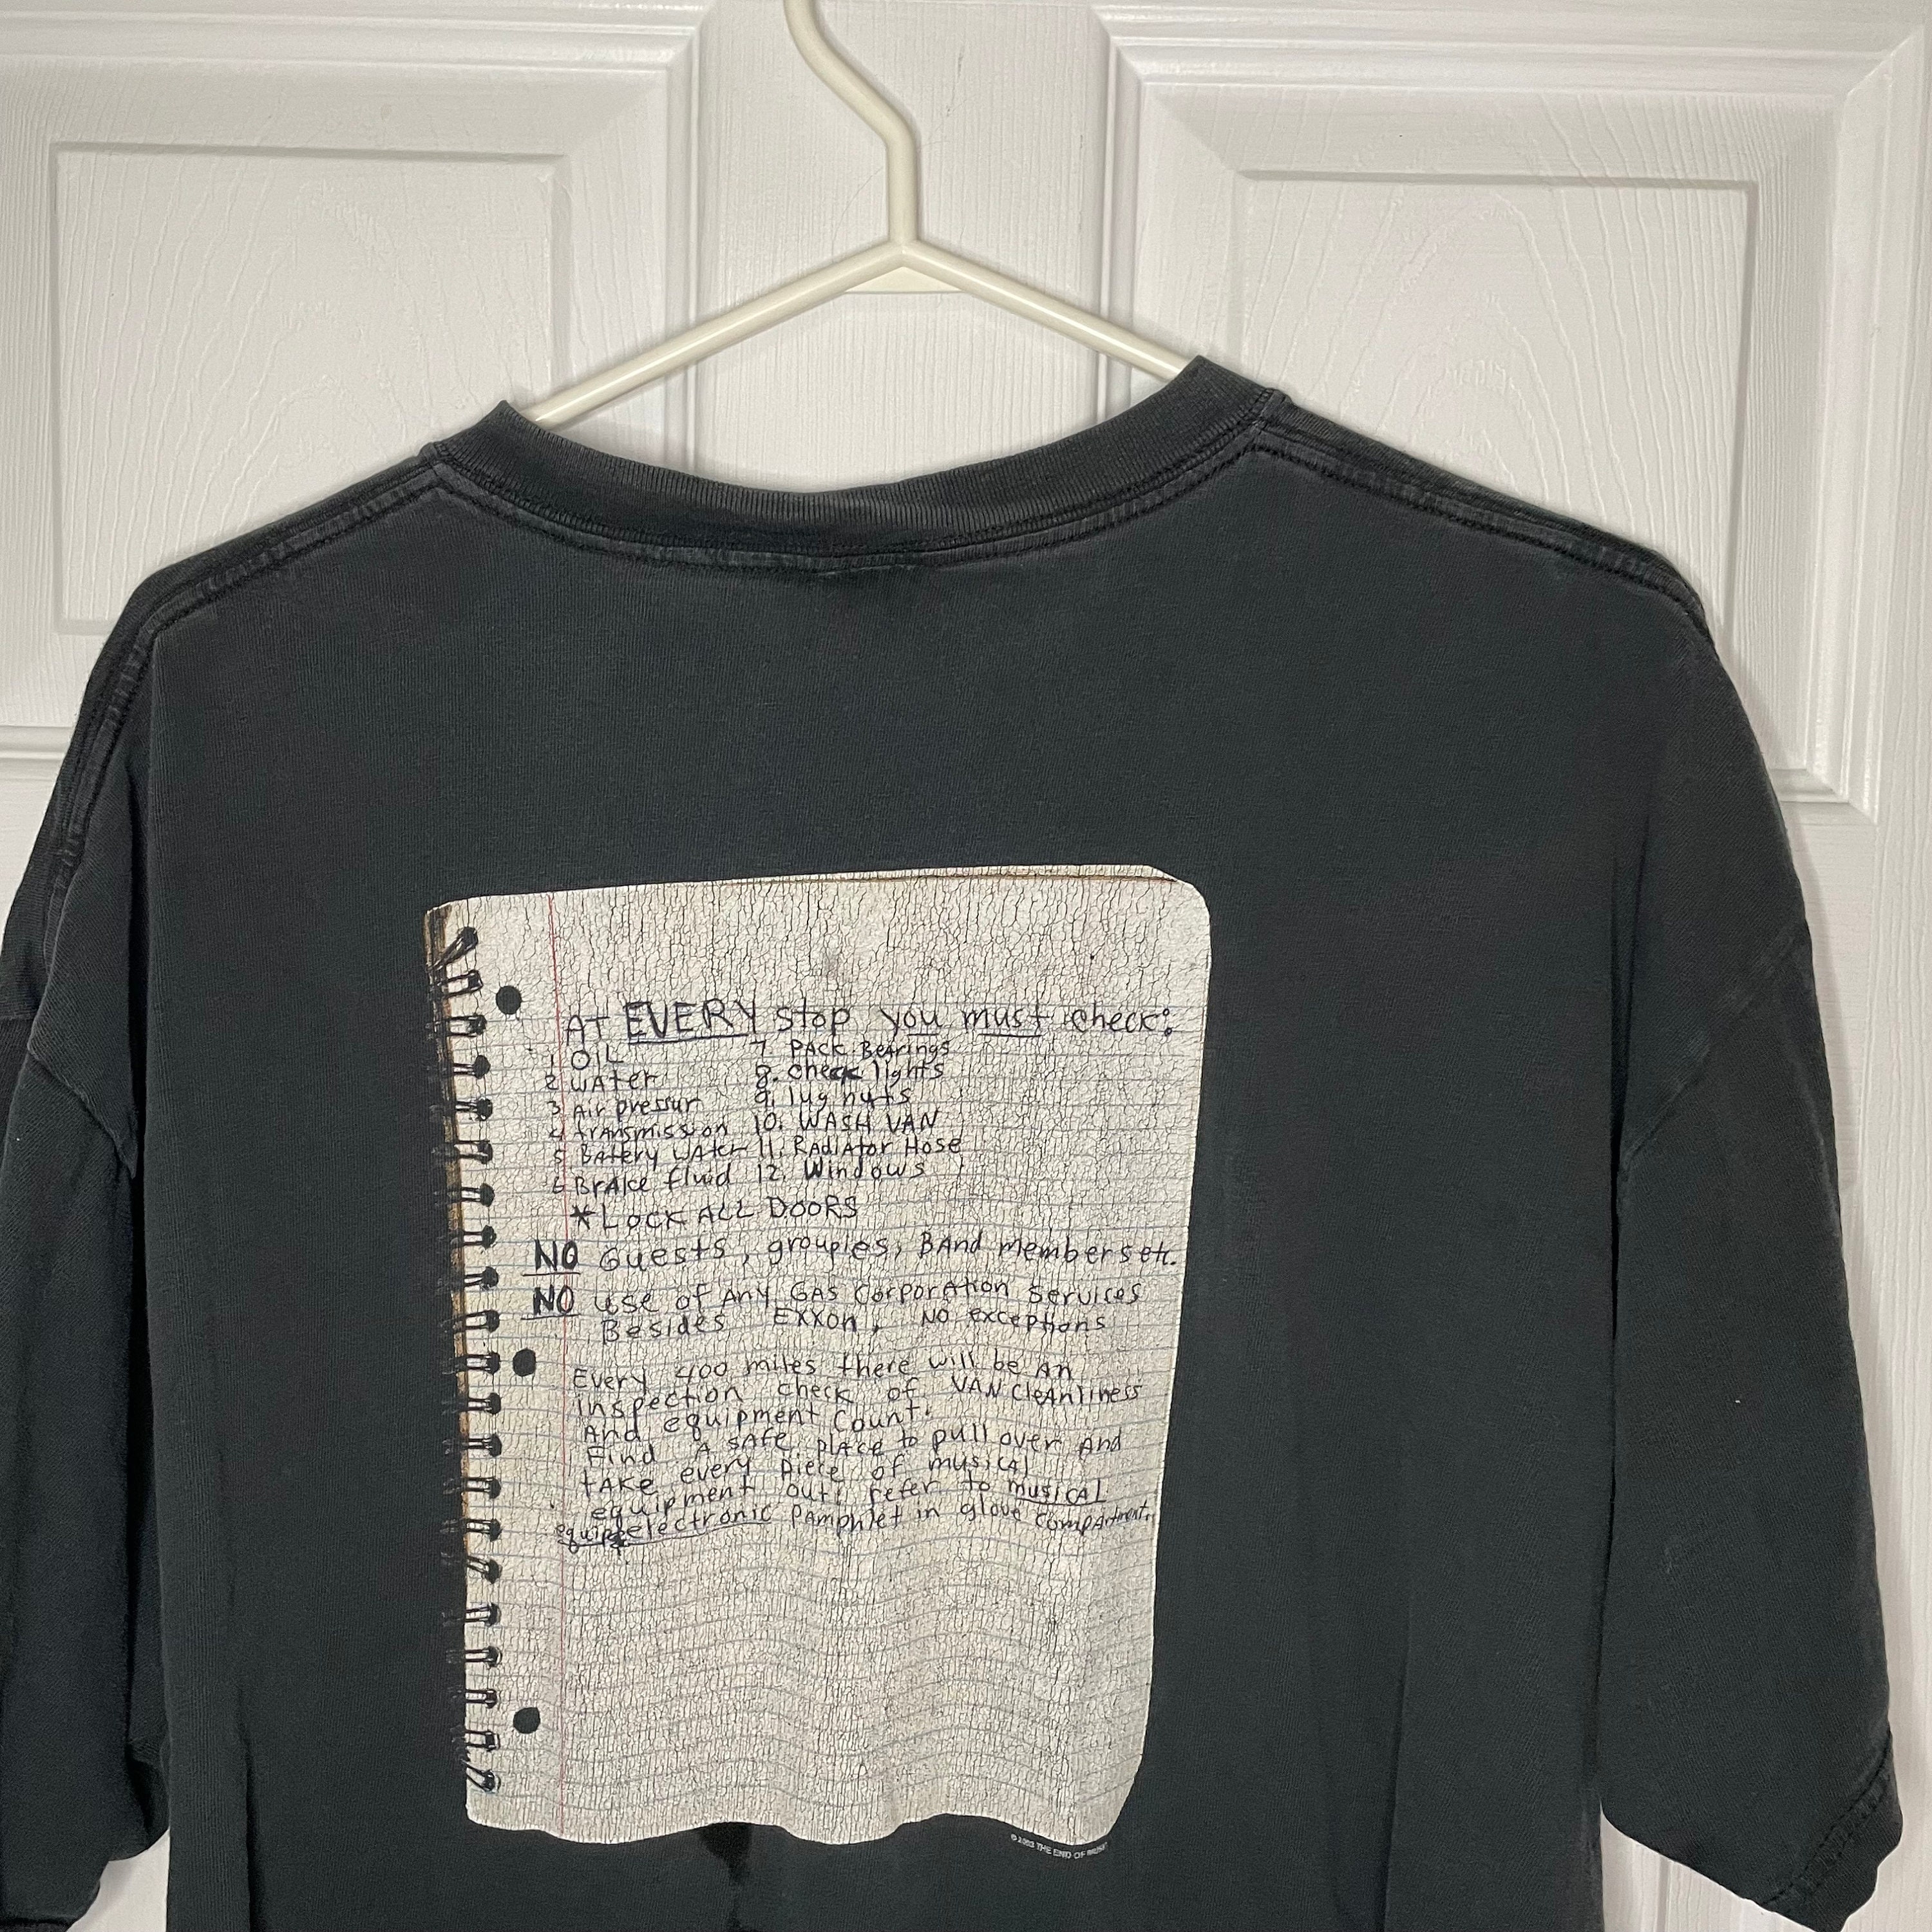 AT EVERY stop you must check:
1 OIL 7. PACK BeArings
2 WAter 8. check lights
3 Air pressur 9. lug nuts
4 trAnsmission 10. WASH VAN
5 BAtery WAter 11. RAdiAtor Hose
6 BrAke fluid 12. Windows
*LOCK ALL DOORS
NO Guests, groupies, BAnd members etc.
NO use of Any GAS CorporAtion Services
Besides EXXon, NO exceptions
Every 400 miles there will be An
inspection check of VAN CleAnliness
And equipment Count.
Find A sAfe place to pull over And
tAKe every piece of musicAl
equipment out: refer to musicAL
electronic PAmphlet in glove CompArtment.
© 2002 THE END OF MUSIC